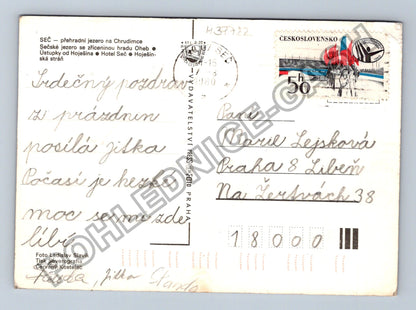 SEČ – přehradní jezero na Chrudimce
Sečské jezero se zříceninou hradu Oheb •
Ústupky od Hoješína • Hotel Seč • Hoješín-
ská stráň
Srdečný pozdrav
z prázdnin
posílá jitka
Počasí je hezké
moc se mi zde
líbí
Foto Ladislav Sitenský
Tisk Severografia
Jitka
VYDAVATELSTVÍ
PRAHA
ČESKOSLOVENSKO
50 h
SEČ
Paní
Marie Lejsková
Praha 8 Libeň
Na Žertvách 38
18000
POHLEDNICE-CZ.COM